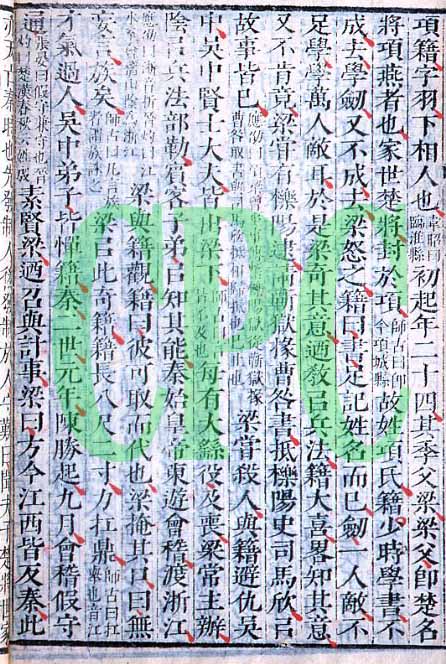 項籍字羽下相人也韋昭曰臨淮縣初起年二十四其季父梁梁父即楚名
將項燕者也家世楚將封於項師古曰即今項城縣故姓項氏籍少時學書不
成去學劒又不成去梁怒之籍曰書足記姓名而已劒一人敵不
足學學萬人敵耳於是梁奇其意迺敎㠯兵法籍大喜畧知其意
又不肯竟梁嘗有櫟陽逮請蘄獄掾曹咎書抵櫟陽史司馬欣㠯
故事皆已梁嘗殺人與籍避仇吳
中吳中賢士大夫皆出梁下每有大繇役及喪梁常主辦
陰㠯兵法部勒賓客子弟㠯知其能秦始皇帝東遊會稽渡浙江
梁與籍觀籍曰彼可取而代也梁掩其口曰無
妄言族矣師古曰凡言族者謂族誅之梁㠯此奇籍籍長八尺二寸力扛鼎師古曰扛舉也音江
才氣過人吳中弟子皆憚籍秦二世元年陳勝起九月會稽假守
通張晏曰假守兼守也晉灼曰楚漢春秋姓殷素賢梁迺召與計事梁曰方今江西皆反秦此
CPC